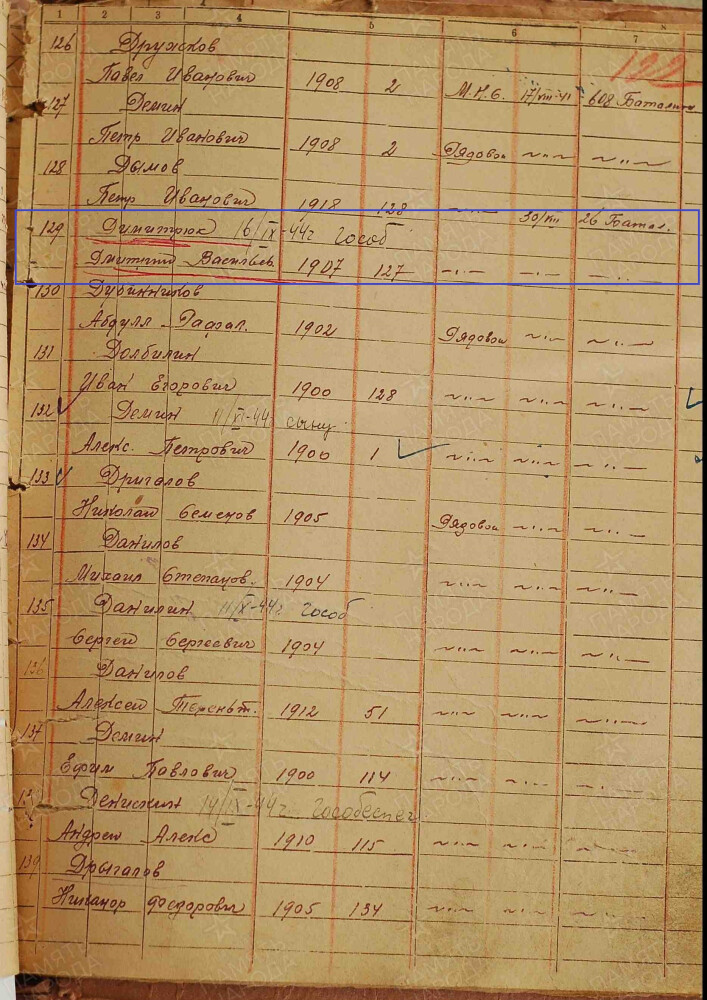 1 2 3 4 5 6 7
126 Дружков
Павел Иванович 1908 2 М.Н.С. 17/VIII-41 608 Батальон
127 Демин
Петр Иванович 1908 2 Рядовой -"- -"-
128 Дымов
Петр Иванович 1918 128 -"- 30/VIII 26 Батал.
129 Димитрюк 16/IX-44г Гособ
Дмитрий Васильев. 1907 127 -"- -"- -"-
130 Дубинников
Абдулл 1902 Рядовой -"- -"-
131 Долбилин
Иван Егорович 1900 128 -"- -"- -"-
132 Демин 11/XI-44г сыну
Алекс. Петрович 1900 1 -"- -"- -"-
133 Дригалов
Николай Семенов 1905 Рядовой -"- -"-
134 Данилов
Михаил Степанов. 1904 -"- -"- -"-
135 Данилин 11/IX-44г Гособ
Сергей Сергеевич 1904 -"- -"- -"-
136 Данилов
Алексей Терентт. 1912 51 -"- -"- -"-
137 Демин
Ефим Павлович 1900 114 -"- -"- -"-
Денискин 14/IX-44г Гособеспеч
Андрей Алекс 1910 115 -"- -"- -"-
139 Дрыгалов
Никанор Федорович 1905 134 -"- -"- -"-